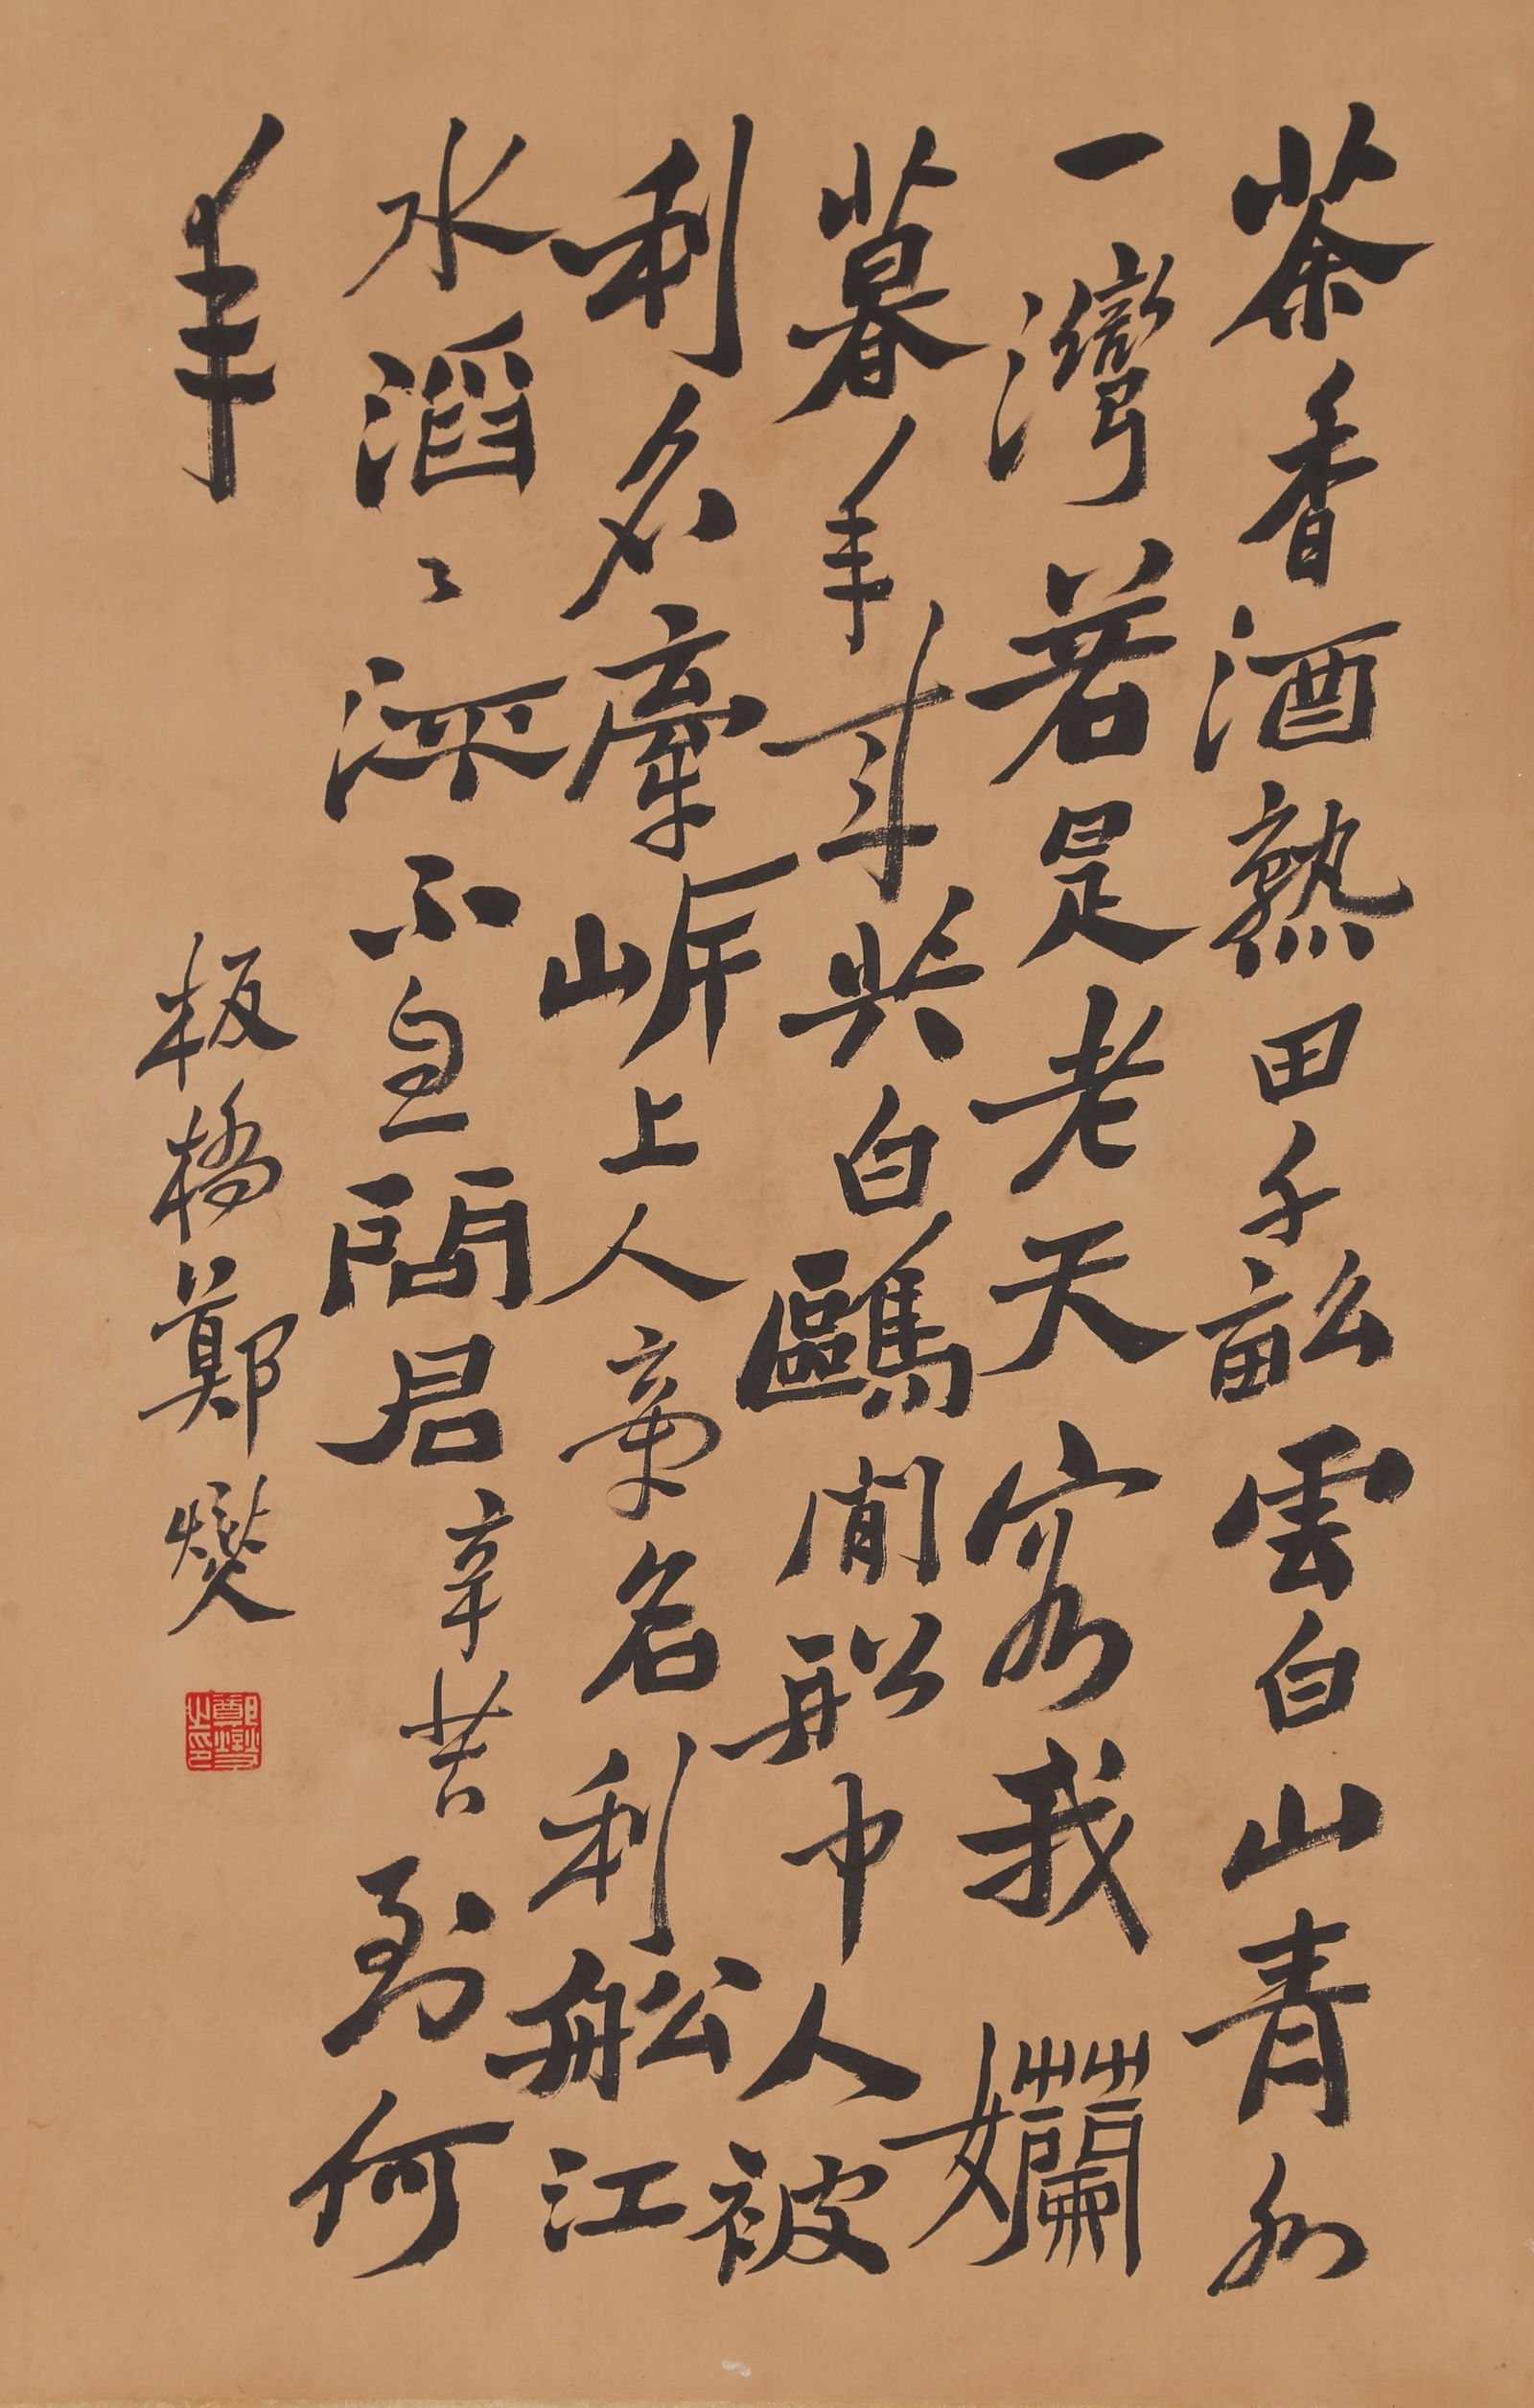 茶香酒熟田千畝雲白山青水
一灣若是老天容我嬾
暮年來共白鷗閒船中人被
利名牽岸上人牽名利船江
水滔々流不息問君辛苦到何
年
板橋鄭燮
鄭燮之印